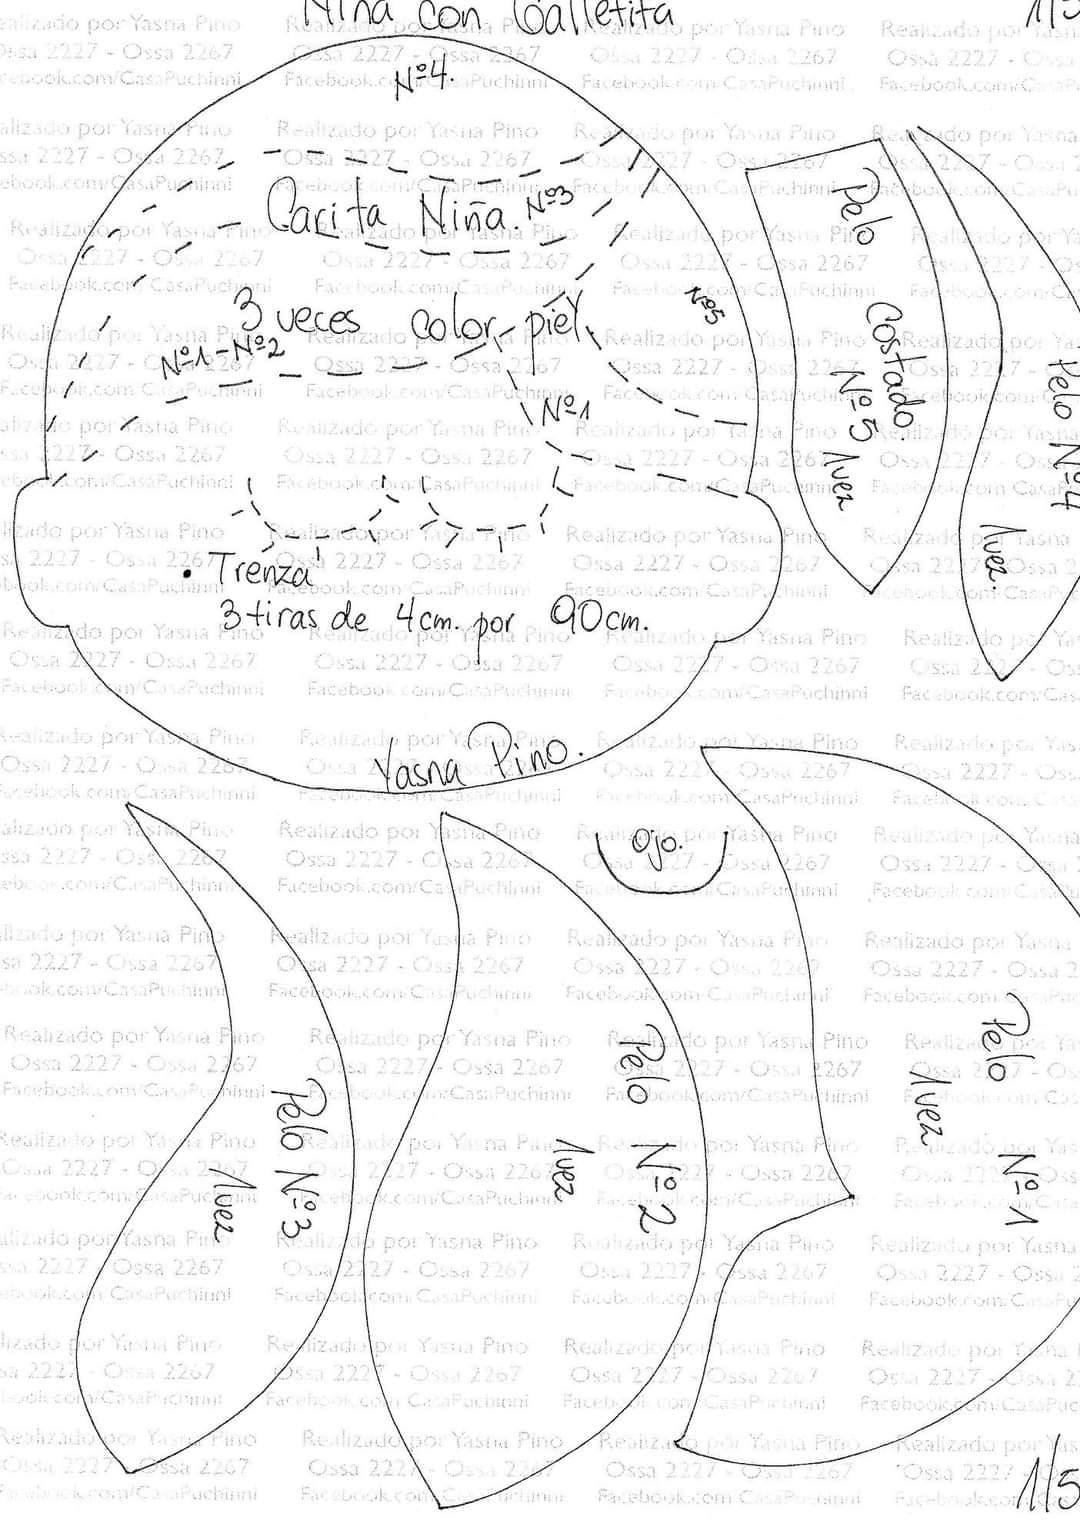 Niña con Galletita
1/5
Nº4.
Carita Niña. Nº3
3 veces color piel
Nº1-Nº2
Nº5
Nº1
• Trenza
3 tiras de 4cm. por 90cm.
Yasna Pino.
Pelo Costado
Nº5 1vez
Pelo Nº4
1vez
Ojo.
Pelo Nº1
1vez
Pelo Nº2
1vez
Pelo Nº3
1vez
1/5
Realizado por Yasna Pino
Ossa 2227 - Ossa 2267
Facebook.com/CasaPuchinni